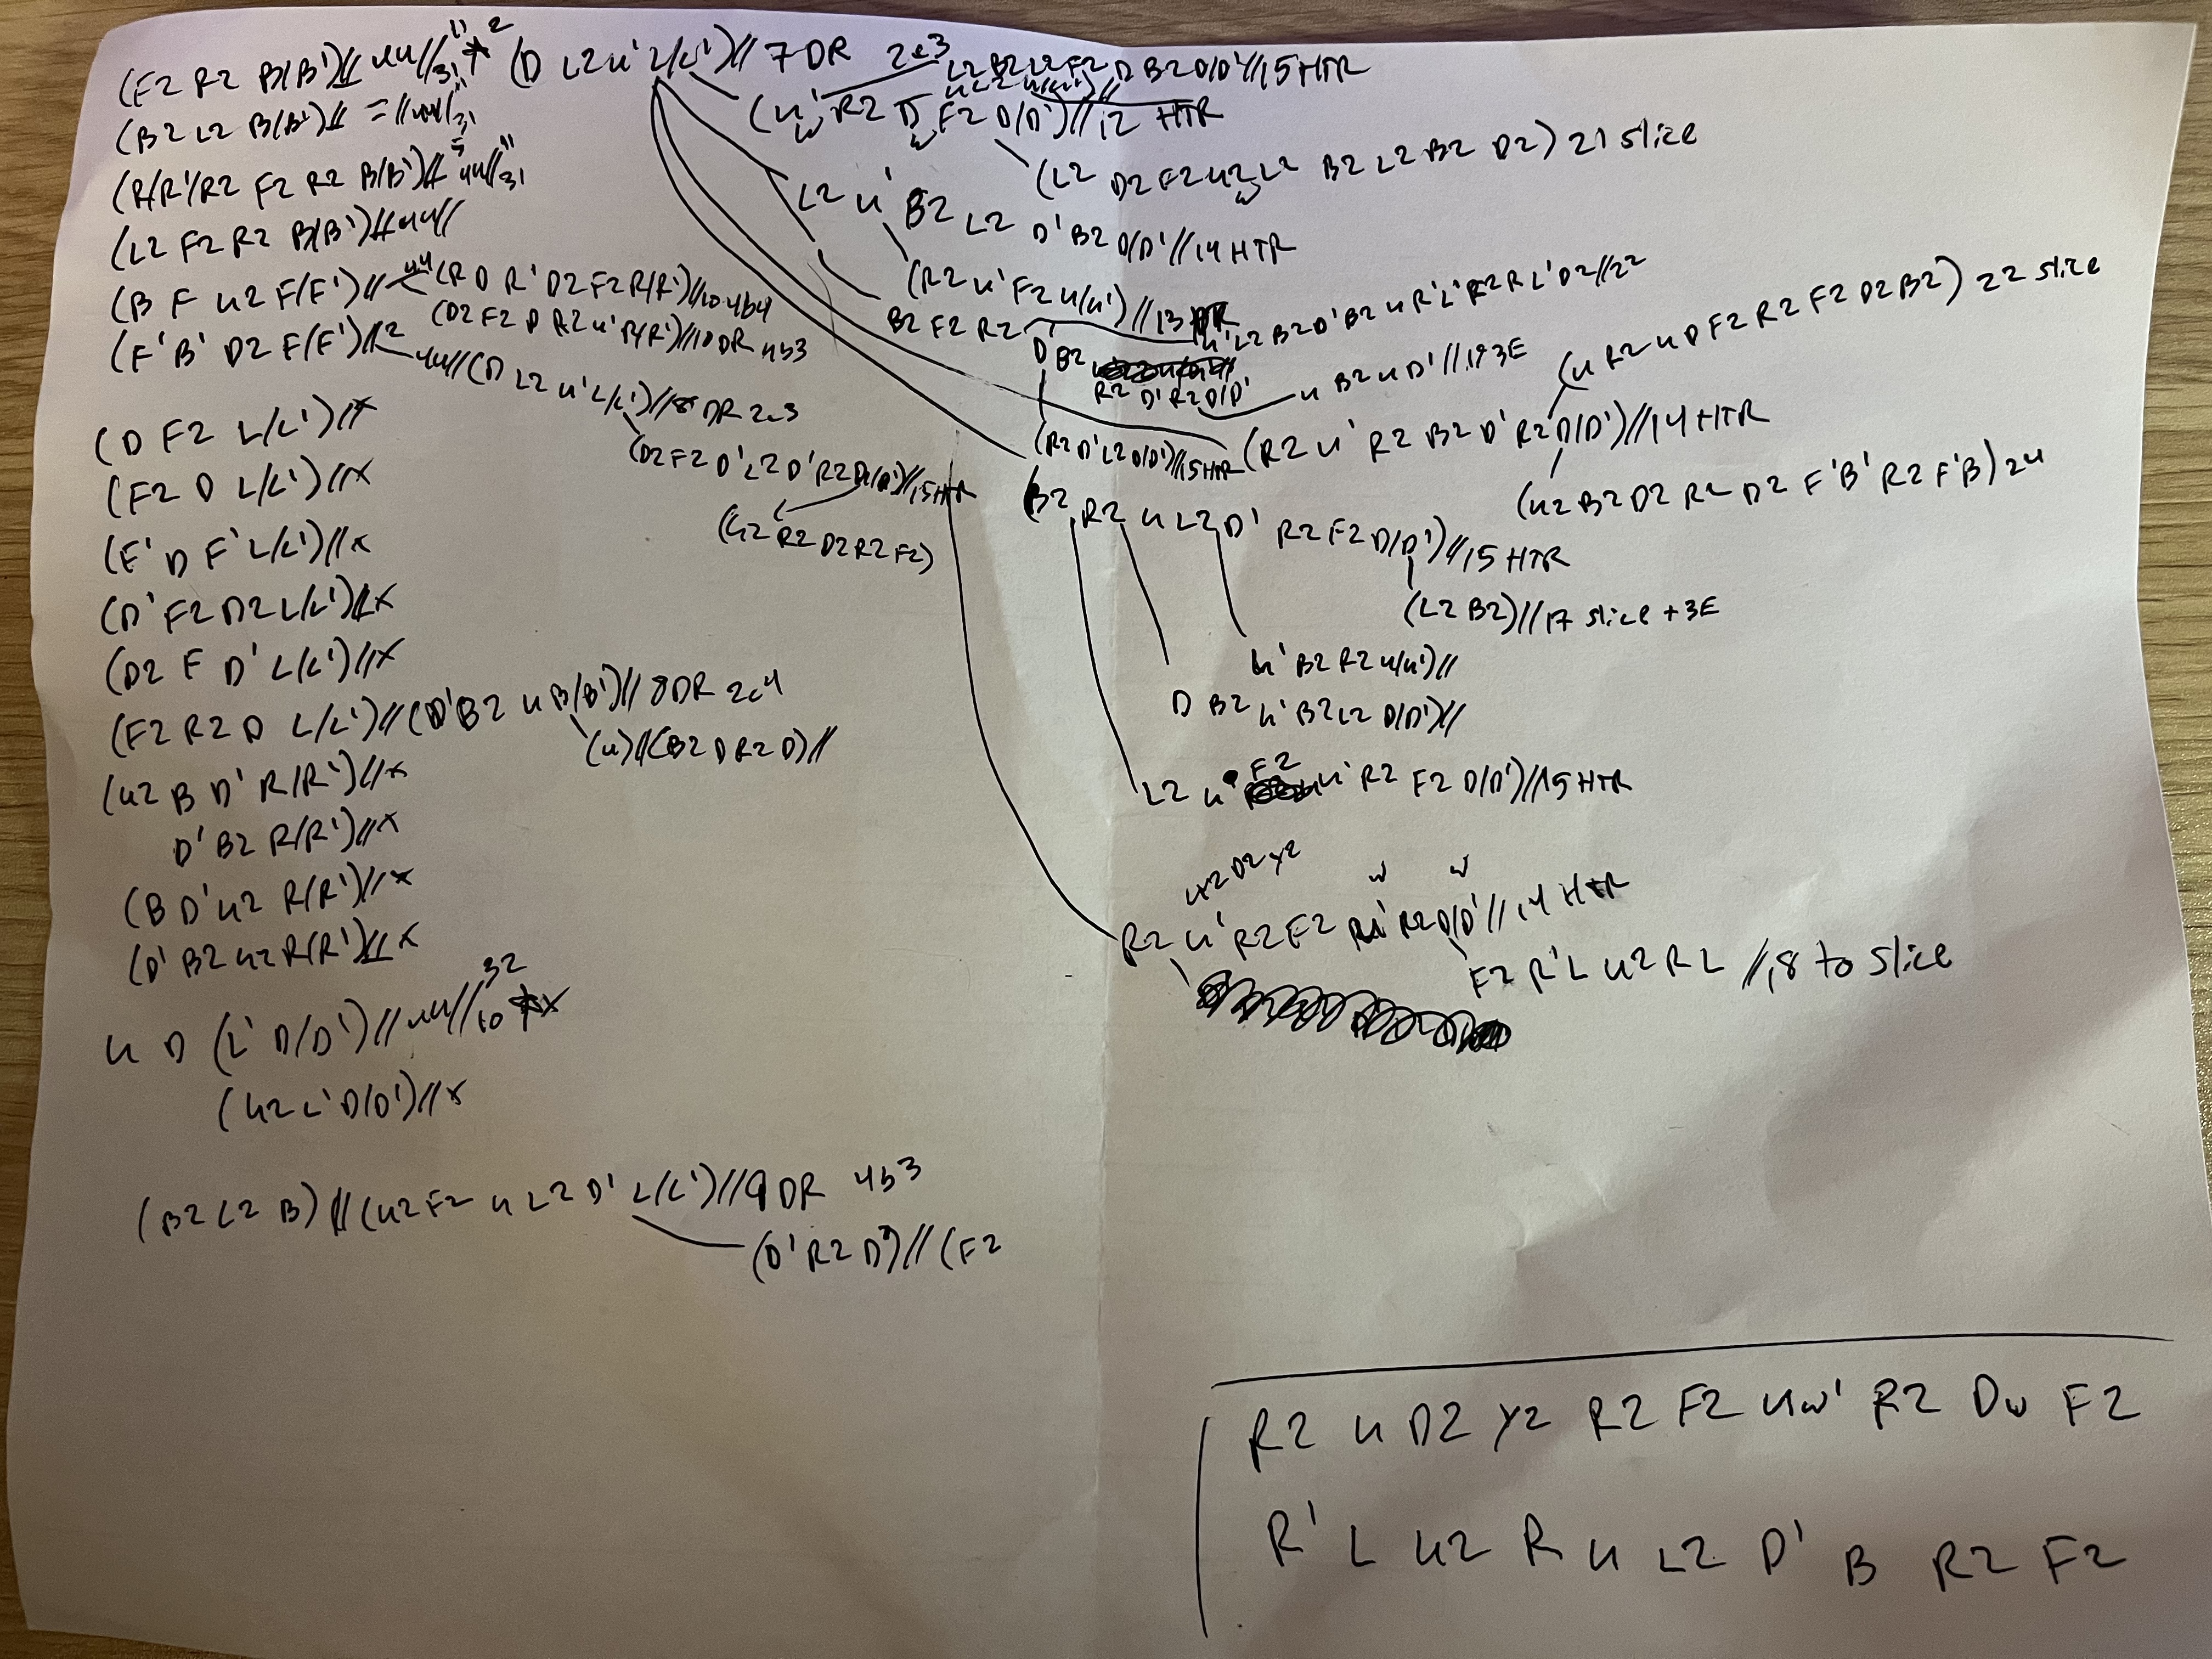 (F2 R2 B(B')// 4u//31 11 2 (D L2 u' L/L')// 7 DR 2c3
L2 B2 L2 F2 D B2 D/D'//15 HTR
(B2 L2 B(B')// = //4u//31 11
(u' R2 D F2 D/D')//12 HTR
w w
(R/R'/R2 F2 R2 B(B')// 5 4u//31 11
(L2 D2 F2 u2 L2 B2 L2 B2 D2) 21 slice
w
(L2 F2 R2 B(B')//4u//
L2 u' B2 L2 D' B2 D/D'//14 HTR
(B F u2 F/F')// 4u (R D R' D2 F2 R/R')//10 4b4
(R2 u' F2 u/u')//13
(F' B' D2 F(F')//2
(D2 F2 D R2 u' R/R')//10 DR 4b3
B2 F2 R2
u' L2 B2 D' B2 u R' L' F2 R L' D2//22
4u//(D L2 u' L/L')//8 DR 2c3
D B2
R2 D' R2 D/D'
u B2 u D'//19 3E
(u R2 u D F2 R2 F2 D2 B2) 22 slice
(D F2 L/L')//x
(D2 F2 D' L2 D' R2 D/D')//15 HTR
(R2 D' L2 D/D')//15 HTR
(R2 u' R2 B2 D' R2 D/D')//14 HTR
(F2 D L/L')//x
(u2 R2 D2 R2 F2)
(B2 R2 u L2 D' R2 F2 D/D')//15 HTR
(u2 B2 D2 R2 D2 F' B' R2 F' B) 24
(F' D F' L/L')//x
(D' F2 D2 L/L')//x
(L2 B2)//17 slice + 3E
(D2 F D' L/L')//x
u' B2 R2 u/u')//
(F2 R2 D L/L')//(D' B2 u B/B')//8 DR 2c4
D B2 u' B2 L2 D/D')//
(u)//(B2 D R2 D)//
(u2 B D' R/R')//x
F2
L2 u' u' R2 F2 D/D')//15 HTR
D' B2 R/R')//x
(B D' u2 R/R')//x
D2 y2
w w
R2 u' R2 F2 u' R2 D/D'//14 HTR
(D' B2 u2 R/R')//x
F2 R' L u2 R L //18 to slice
u D (L' D/D')//4u//10 32 x
(u2 L' D/D')//x
(B2 L2 B)//(u2 F2 u L2 D' L/L')//9 DR 4b3
(D' R2 D')//(F2
R2 u D2 y2 R2 F2 uw' R2 Dw F2
R' L u2 R u L2 D' B R2 F2